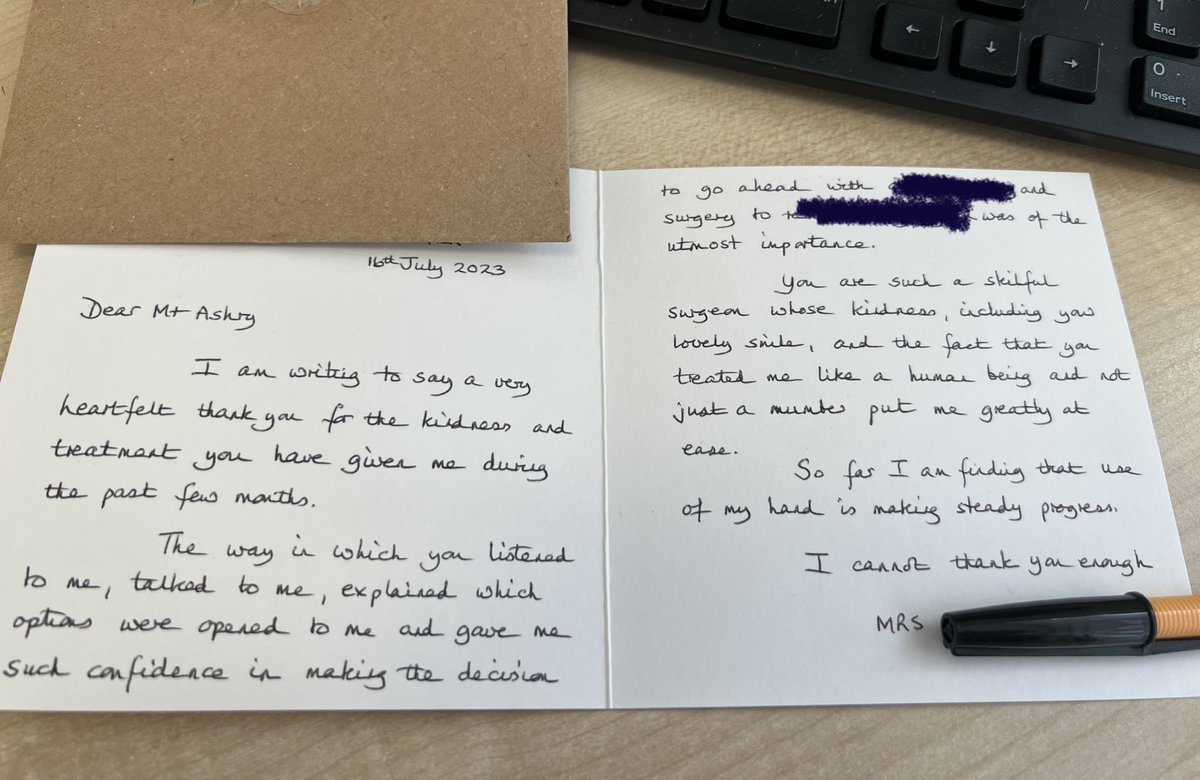 End
0
Insert
16th July 2023
Dear Mr Ashry
I am writing to say a very
heartfelt thank you for the kindness and
treatment you have given me during
the past few months.
The way in which you listened
to me, talked to me, explained which
options were opened to me and gave me
such confidence in making the decision
to go ahead with and
surgery to was of the
utmost importance.
You are such a skilful
surgeon whose kindness, including your
lovely smile, and the fact that you
treated me like a human being and not
just a number put me greatly at
ease.
So far I am finding that use
of my hand is making steady progress.
I cannot thank you enough
MRS